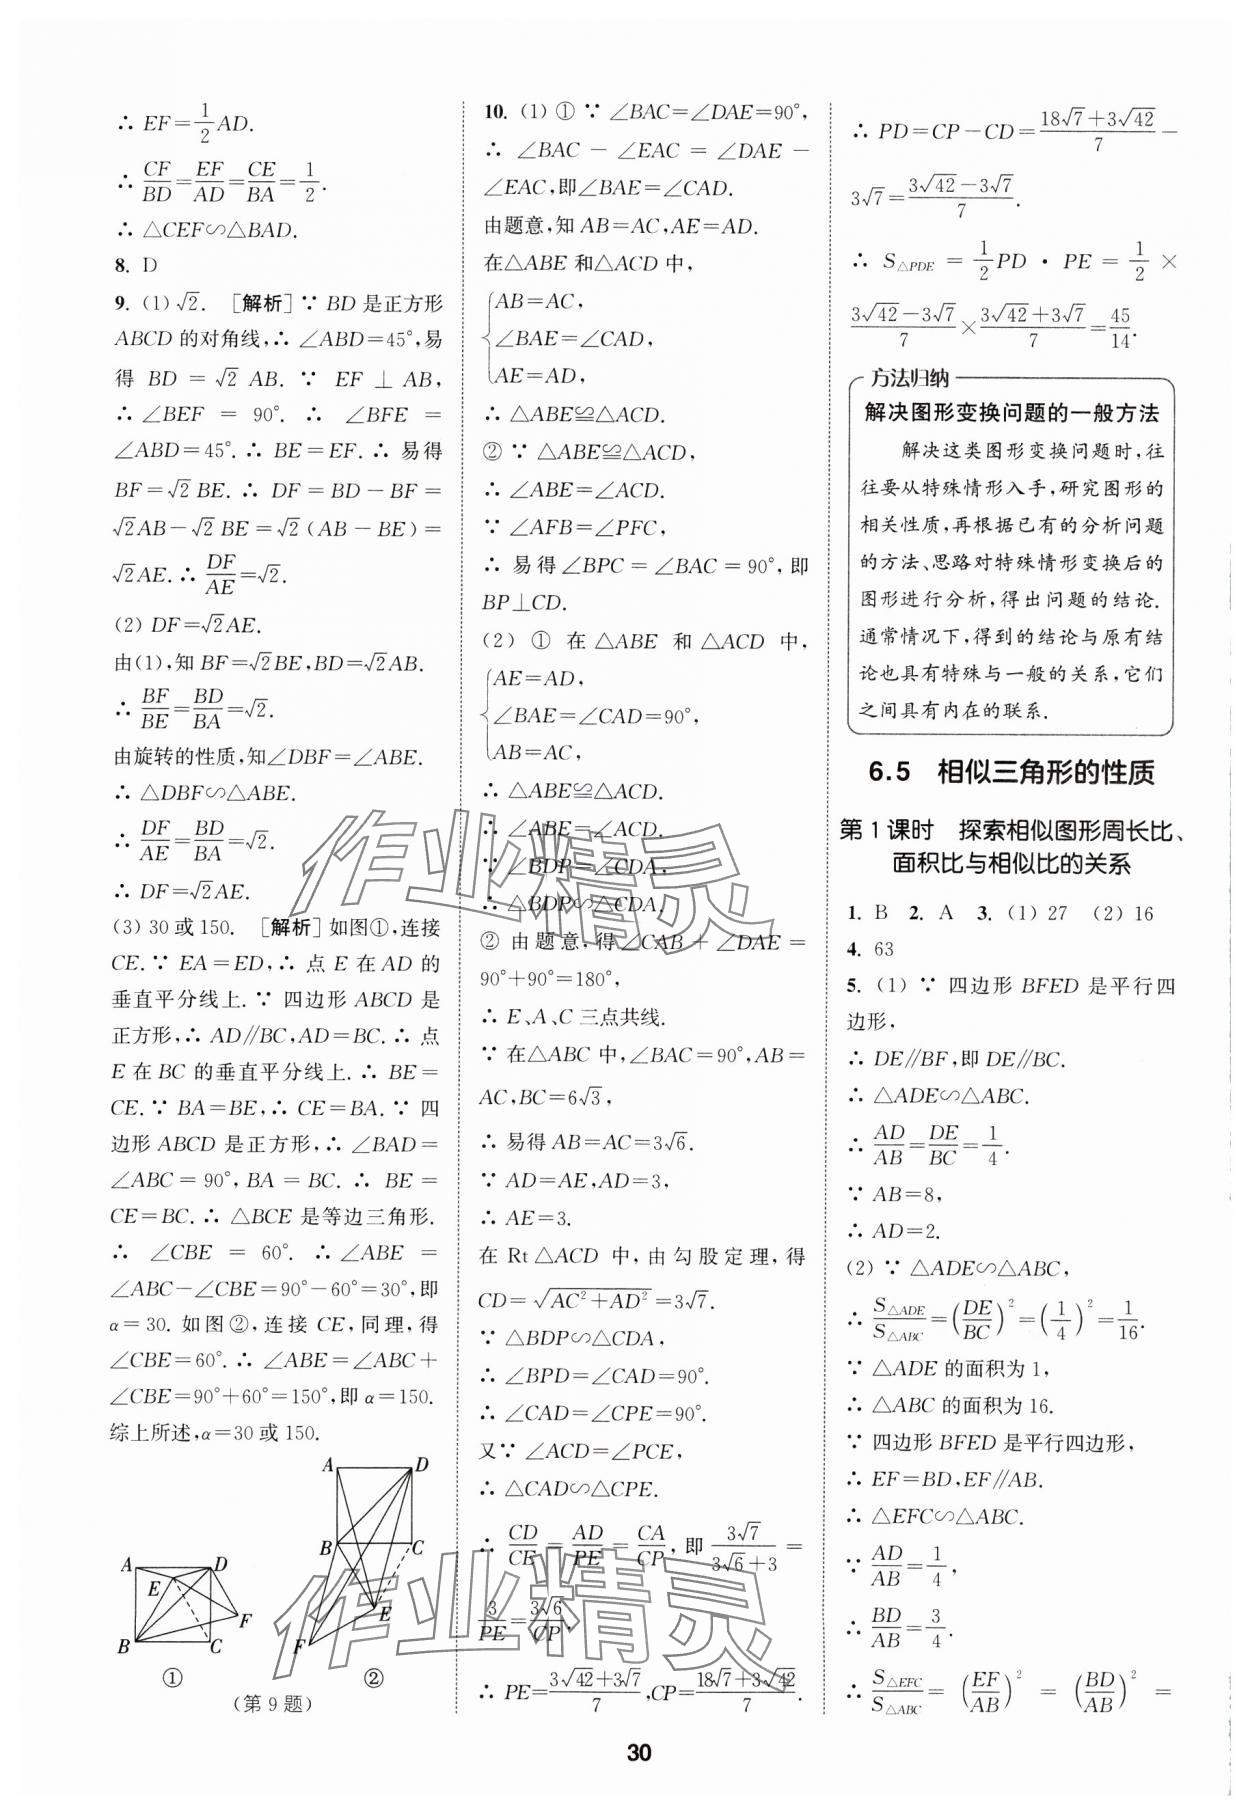 ∴ EF=1/2AD.
∴ CF/BD=EF/AD=CE/BA=1/2.
∴ △CEF∽△BAD.
8. D
9. (1) √2. [解析]∵ BD 是正方形
ABCD 的对角线,∴ ∠ABD=45°,易
得 BD = √2 AB. ∵ EF ⊥ AB,
∴ ∠BEF = 90°. ∴ ∠BFE =
∠ABD=45°.∴ BE=EF.∴ 易得
BF=√2 BE.∴ DF=BD-BF=
√2AB-√2 BE=√2 (AB-BE)=
√2AE.∴ DF/AE=√2.
(2) DF=√2AE.
由(1),知 BF=√2BE,BD=√2AB.
∴ BF/BE=BD/BA=√2.
由旋转的性质,知∠DBF=∠ABE.
∴ △DBF∽△ABE.
∴ DF/AE=BD/BA=√2.
∴ DF=√2AE.
(3) 30 或 150. [解析]如图①,连接
CE.∵ EA=ED,∴ 点 E 在 AD 的
垂直平分线上.∵ 四边形 ABCD 是
正方形,∴ AD∥BC,AD=BC.∴ 点
E 在 BC 的垂直平分线上.∴ BE=
CE.∵ BA=BE,∴ CE=BA.∵ 四
边形 ABCD 是正方形,∴ ∠BAD=
∠ABC = 90°, BA = BC. ∴ BE =
CE=BC.∴ △BCE 是等边三角形.
∴ ∠CBE = 60°. ∴ ∠ABE =
∠ABC-∠CBE=90°-60°=30°,即
α=30. 如图②,连接 CE,同理,得
∠CBE=60°.∴ ∠ABE=∠ABC+
∠CBE=90°+60°=150°,即 α=150.
综上所述,α=30 或 150.
A D
B C
E
F
②
A D
E
F
B C
①
(第 9 题)
10. (1) ① ∵ ∠BAC=∠DAE=90°,
∴ ∠BAC - ∠EAC = ∠DAE -
∠EAC,即∠BAE=∠CAD.
由题意,知 AB=AC,AE=AD.
在△ABE 和△ACD 中,
AB=AC,
∠BAE=∠CAD,
AE=AD,
∴ △ABE≌△ACD.
② ∵ △ABE≌△ACD,
∴ ∠ABE=∠ACD.
∵ ∠AFB=∠PFC,
∴ 易得∠BPC=∠BAC=90°,即
BP⊥CD.
(2) ① 在 △ABE 和 △ACD 中,
AE=AD,
∠BAE=∠CAD=90°,
AB=AC,
∴ △ABE≌△ACD.
∴ ∠ABE=∠ACD.
∵ ∠BDP=∠CDA,
∴ △BDP∽△CDA.
② 由题意,得∠CAB+∠DAE=
90°+90°=180°,
∴ E、A、C 三点共线.
∵ 在△ABC 中,∠BAC=90°,AB=
AC,BC=6√3,
∴ 易得 AB=AC=3√6.
∵ AD=AE,AD=3,
∴ AE=3.
在 Rt△ACD 中,由勾股定理,得
CD=√(AC²+AD²)=3√7.
∵ △BDP∽△CDA,
∴ ∠BPD=∠CAD=90°.
∴ ∠CAD=∠CPE=90°.
又∵ ∠ACD=∠PCE,
∴ △CAD∽△CPE.
∴ CD/CE=AD/PE=CA/CP,即 3√7/(3√6+3)=
3/PE=3√6/CP.
∴ PE=(3√42+3√7)/7,CP=(18√7+3√42)/7.
∴ PD=CP-CD=(18√7+3√42)/7-
3√7=(3√42-3√7)/7.
∴ S△PDE = 1/2 PD · PE = 1/2 ×
(3√42-3√7)/7×(3√42+3√7)/7=45/14.
方法归纳
解决图形变换问题的一般方法
解决这类图形变换问题时,往
往要从特殊情形入手,研究图形的
相关性质,再根据已有的分析问题
的方法、思路对特殊情形变换后的
图形进行分析,得出问题的结论.
通常情况下,得到的结论与原有结
论也具有特殊与一般的关系,它们
之间具有内在的联系.
6.5 相似三角形的性质
第 1 课时 探索相似图形周长比、
面积比与相似比的关系
1. B 2. A 3. (1) 27 (2) 16
4. 63
5. (1) ∵ 四边形 BFED 是平行四
边形,
∴ DE∥BF,即 DE∥BC.
∴ △ADE∽△ABC.
∴ AD/AB=DE/BC=1/4.
∵ AB=8,
∴ AD=2.
(2) ∵ △ADE∽△ABC,
∴ S△ADE/S△ABC=(DE/BC)²=(1/4)²=1/16.
∵ △ADE 的面积为 1,
∴ △ABC 的面积为 16.
∵ 四边形 BFED 是平行四边形,
∴ EF=BD,EF∥AB.
∴ △EFC∽△ABC.
∵ AD/AB=1/4,
∴ BD/AB=3/4.
∴ S△EFC/S△ABC = (EF/AB)² = (BD/AB)² =
30
作业精灵
作业精灵